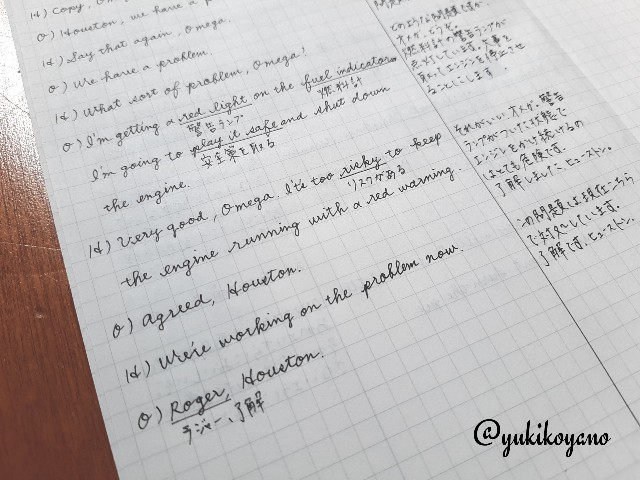 H) Copy, Om
O) Houston, we have a p
H) Say that again, Omega.
O) We have a problem.
H) What sort of problem, Omega?
O) I'm getting a red light on the fuel indicator
警告ランプ 燃料計
I'm going to play it safe and shut down
安全策を取る
the engine.
H) Very good, Omega. It's too risky to keep
リスクがある
the engine running with a red warning.
O) Agreed, Houston.
H) We're working on the problem now.
O) Roger, Houston.
ラジャー、了解
どのような問題ですか、
オメガ、どうぞ。
燃料計で警告ランプが
点灯しています。大事を
とってエンジンを停止させ
ることにします
それがいい、オメガ。警告
ランプがついてる状態で
エンジンをかけ続けるの
はとても危険です。
了解しました、ヒューストン。
この問題は現在こちら
で対処しています。
了解です。ヒューストン。
@yukikoyano